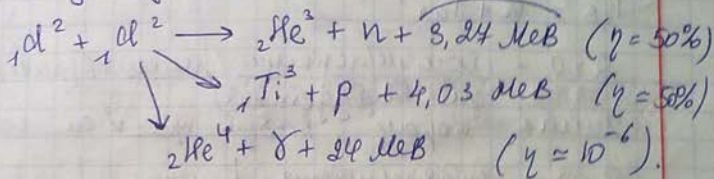 ₁d² + ₁d² → ₂He³ + n + 3,27 МеВ (η = 50%)
₁Ti³ + p + 4,03 МеВ (η = 50%)
₂He⁴ + γ + 24 МеВ (η ≃ 10⁻⁶).